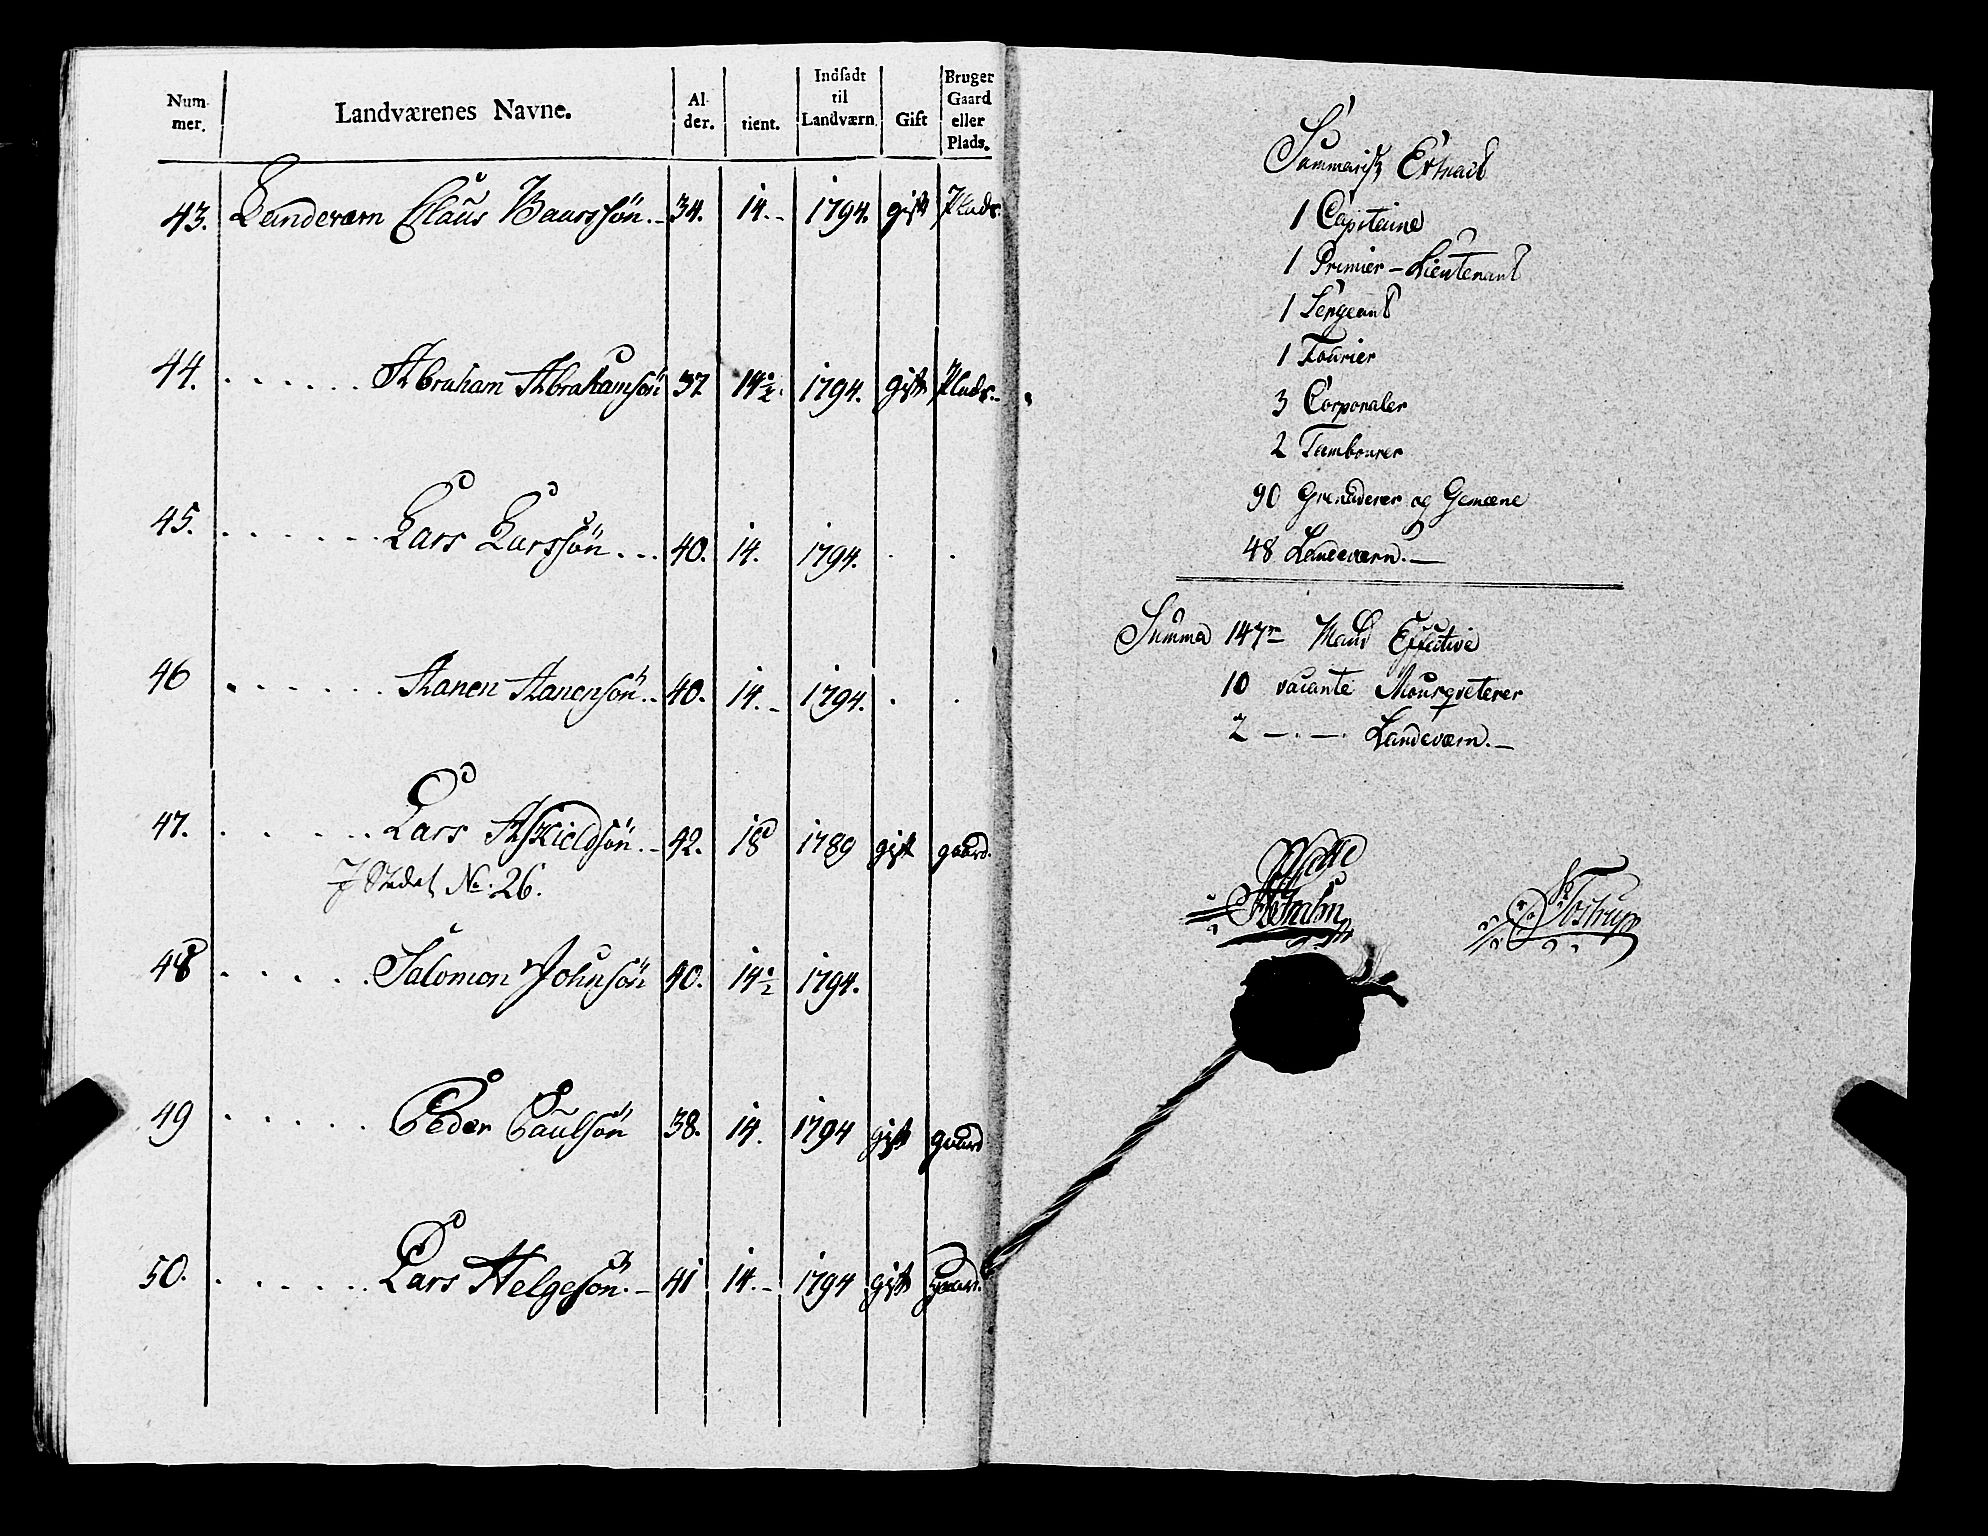 Num-
mer.
Landværenes Navne.
Al-
der.
tient.
Indsadt
til
Landværn.
Gift
Bruger
Gaard
eller
Plads.
43. Landeværn Claus Baarssøn. 34. 14. 1794. gift Plads.
44. Abraham Abrahamsøn 37 14½. 1794. gift Plads.
45. Lars Larssøn 40. 14. 1794.
46 Hanen Hanensøn 40. 14. 1794.
47. Lars Askieldsøn 42. 18 1789 gift gaard.
I Stedet No. 26.
48 Salomon Johnsøn 40. 14½ 1794.
49 Peder Paulsøn 38. 14. 1794 gift gaard
50. Lars Helgesøn. 41 14. 1794 gift gaard.
Summarisk Extract
1 Capitaine
1 Primier-Lieutenant
1 Sergeant
1 Fourier
3 Corporaler
2 Tambourer
90 Grenaderer og Gemeene
48 Landeværn.
Summa 147 Mand Effective
10 vacante Mousqveterer
2 — . — . Landeværn.
Tostrup